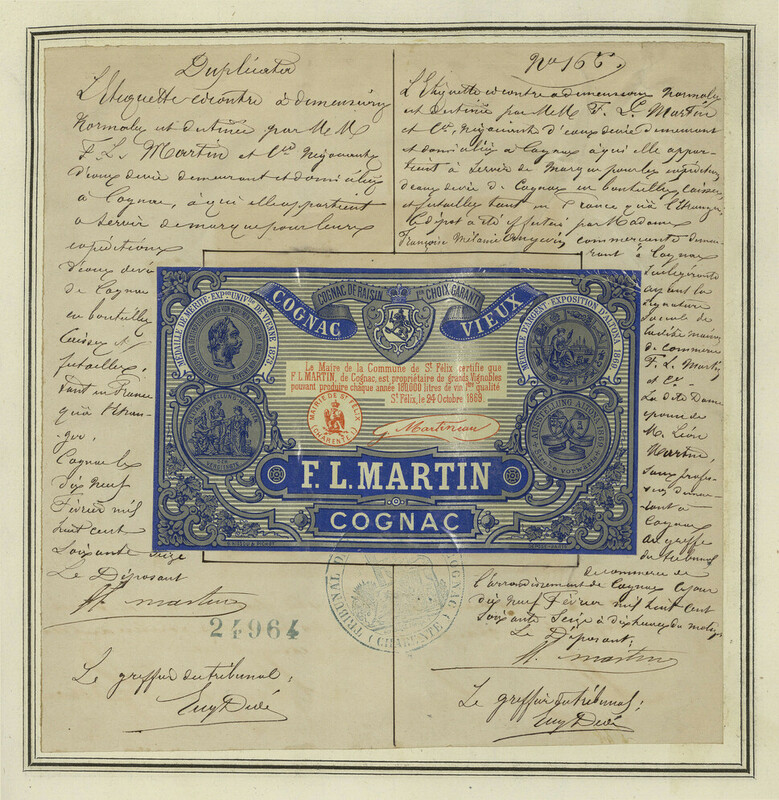 Duplicata
L'Etiquette ci contre à dimensions
Normales est destinée par MM
F. L. Martin et Cie Négociants
d'eaux de vie demeurant et domiciliés
à Cognac, à qui elle appartient
à servir de marque pour leurs
expéditions
d'eaux de vie
de Cognac
en bouteilles
Caisses et
futailles,
tant en France
qu'à l'étran-
ger.
Cognac le
dix neuf
Février mil
huit cent
Soixante seize
Le Déposant
martin
24964
Le greffier du tribunal:
No 166.
L'Etiquette ci contre à dimensions Normales
est destinée par MM F. L. Martin
et Cie, Négociants d'eaux de vie demeurant
et domiciliés à Cognac à qui elle appar-
tient à servir de Marque pour les expéditions
d'eaux de vie de Cognac en bouteilles, caisses,
et futailles tant en France qu'à l'étranger,
Le dépôt a été effectué par Madame
Françoise Mélanie commerciante demeu-
rant à Cognac
ayant la
signature
sociale de
la dite maison
de commerce
F. L. Martin
et Cie
La dite Dame
épouse de
M. Léon
Martin,
sans profes-
sion demeu-
rant à
Cognac
au greffe
du tribunal
de commerce de
l'arrondissement de Cognac ce jour
dix neuf Février mil huit cent
soixante seize à dix heures du matin
Le Déposant:
martin
Le greffier du tribunal:
MÉDAILLE DE MÉRITE-EXPON UNIVLLE DE VIENNE 1873
COGNAC
COGNAC DE RAISIN
1er CHOIX GARANTI
VIEUX
MÉDAILLE D'ARGENT-EXPOSITION D'ALTONA 1869
Le Maire de la Commune de St Félix certifie que
F. L. MARTIN, de Cognac, est propriétaire de grands Vignobles
pouvant produire chaque année 180.000 litres de vin 1ère qualité
St Félix, le 24 Octobre 1869
MAIRIE DE ST FÉLIX
(CHARENTE)
Martineau
AUSSTELLUNG ALTONA 1869
F. L. MARTIN
COGNAC
TRIBUNAL DE COGNAC (CHARENTE)